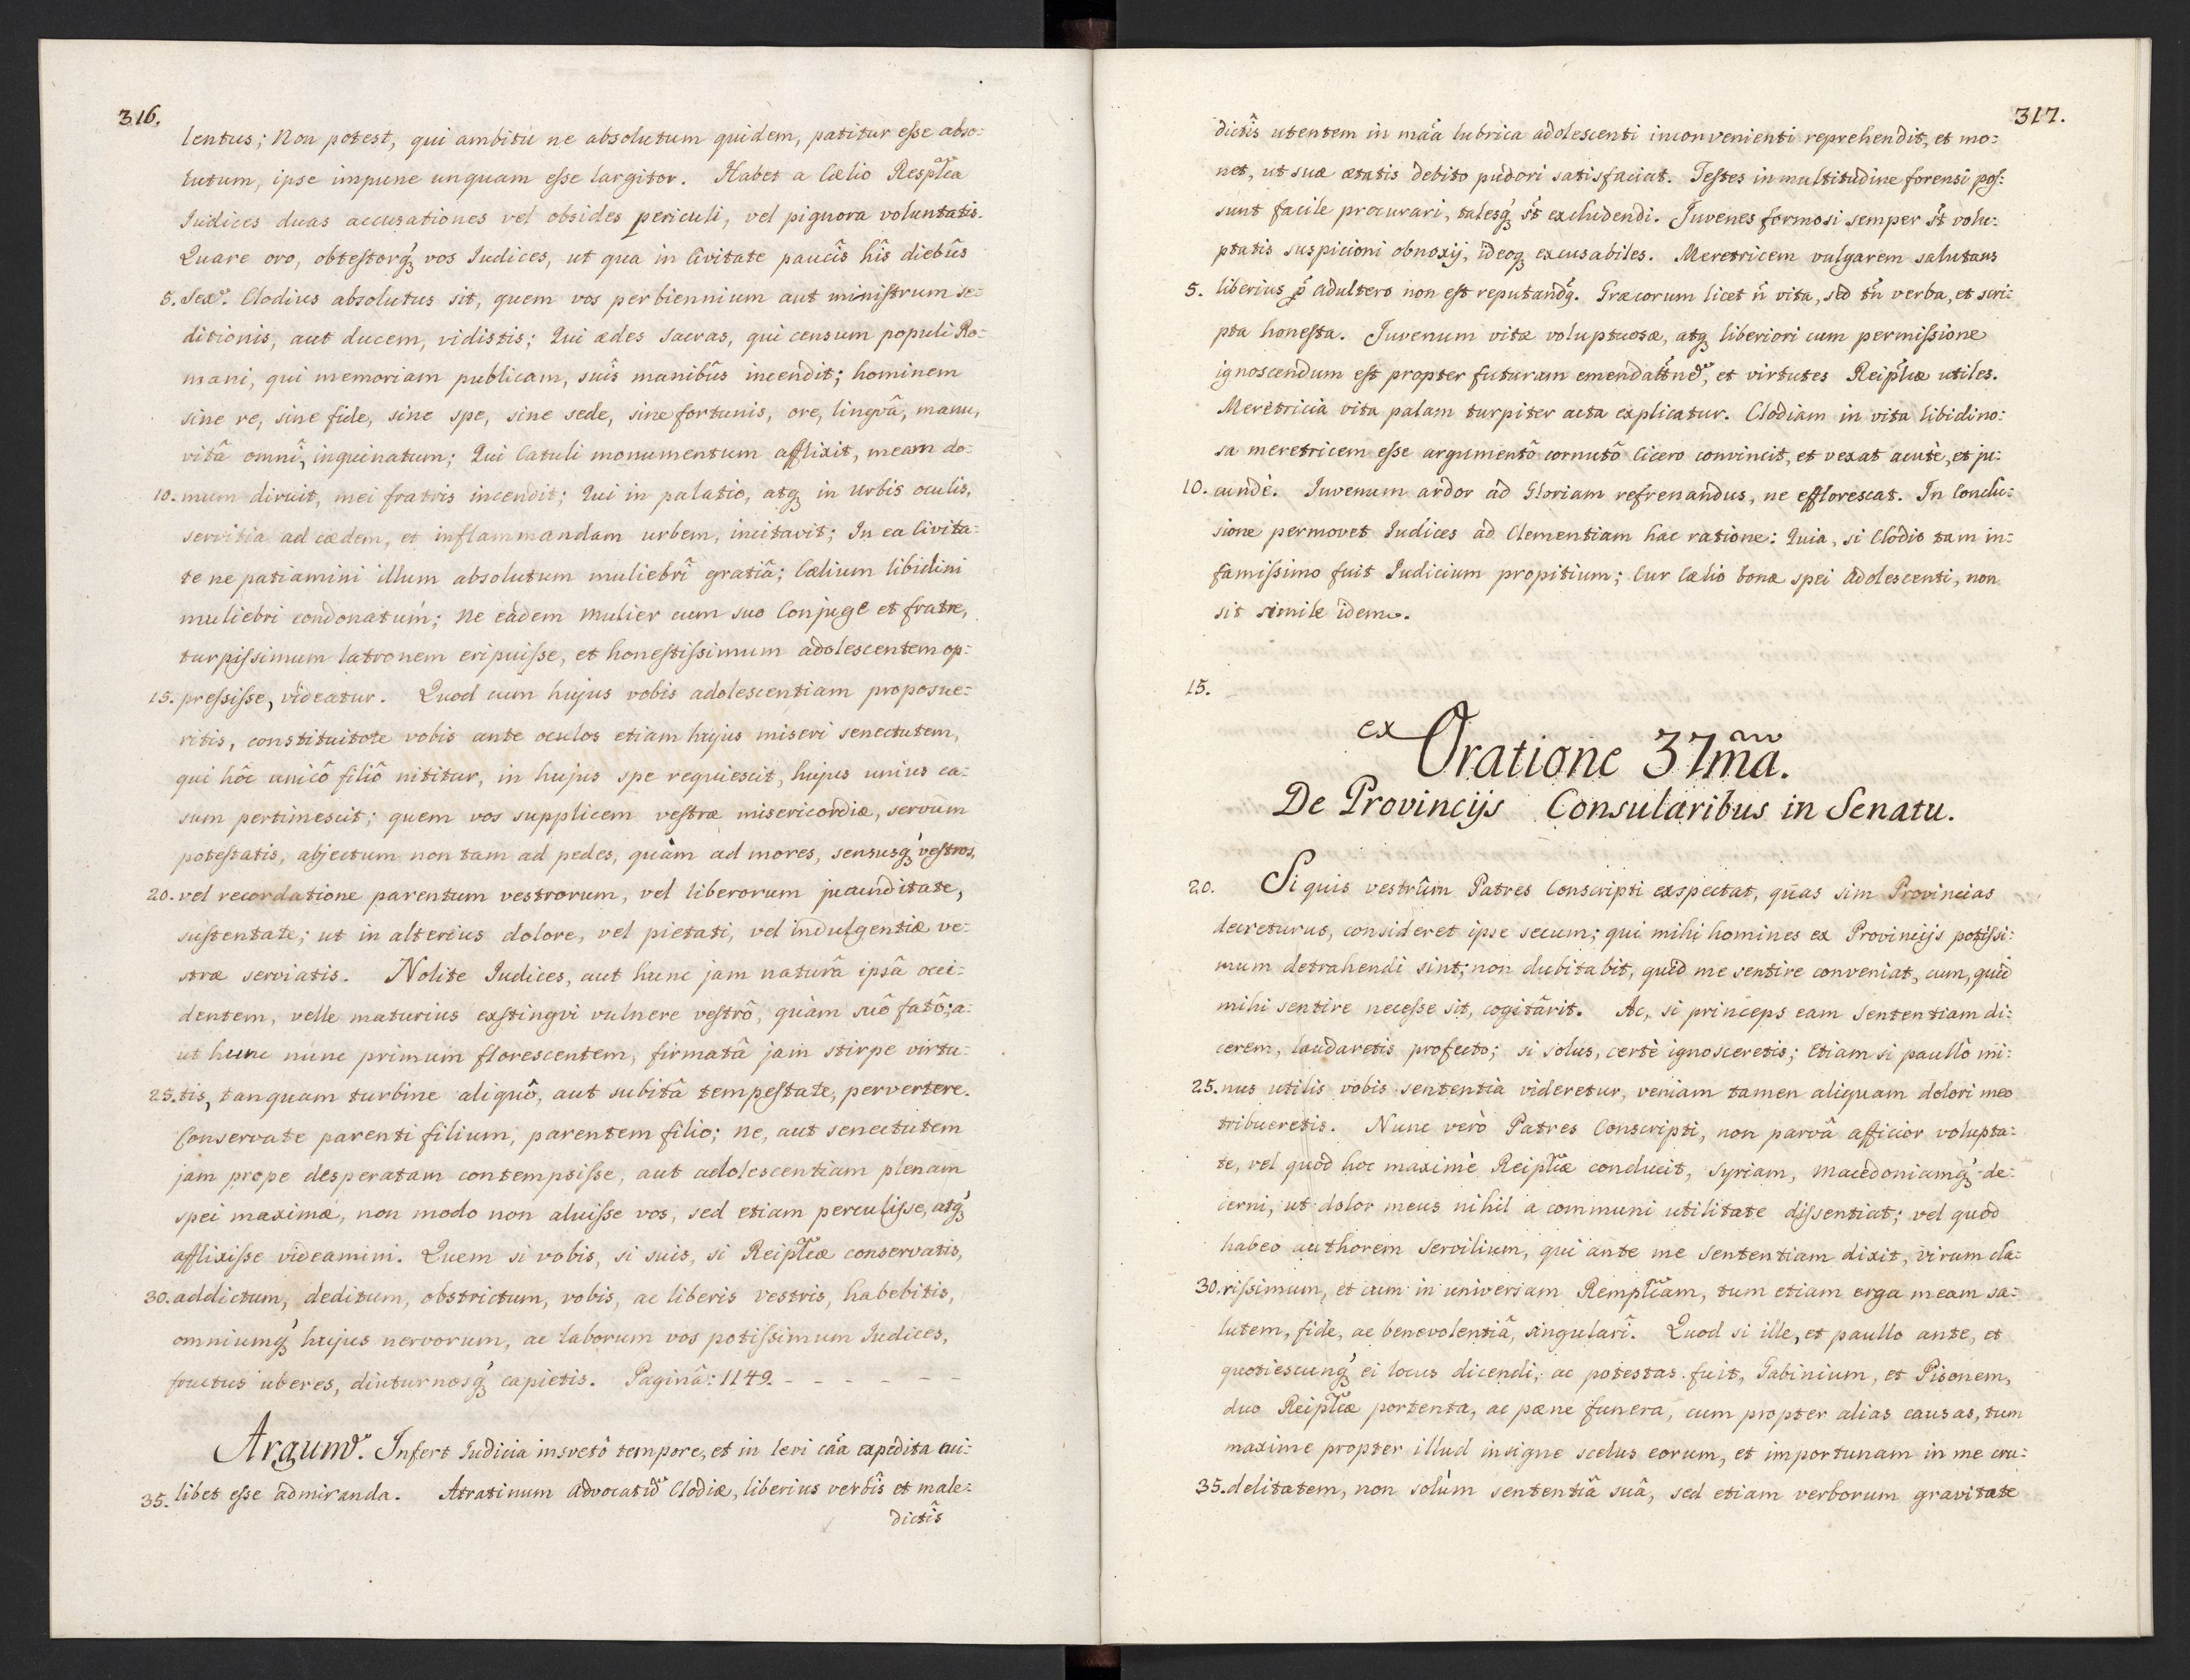 316.
lentus; Non potest, qui ambitu ne absolutum quidem, patitur esse abso:
lutum, ipse impune unquam esse largitor. Habet a Cælio Resplca
Iudices duas accusationes vel obsides periculi, vel pignora voluntatis.
Quare oro, obtestorq́ꝫ vos Iudices, ut qua in Civitate paucîs hîs diebûs
5. Sex⁹. Clodius absolutus sit, quem vos per biennium aut ministrum se:
ditionis, aut ducem, vidistis; Qui ædes sacras, qui censum populi Ro:
mani, qui memoriam publicam, suîs manibûs incendit; hominem
sine re, sine fide, sine spe, sine sede, sine fortunis, ore, lingvâ, manu,
vitâ omnî, inquinatum; Qui Catuli monumentum afflixit, meam do:
10. mum diruit, mei fratris incendit; Qui in palatio, atqꝫ in Urbis oculis,
servitia ad cædem, et inflammandam urbem, incitavit; In ea Civita:
te ne patiamini illum absolutum muliebrî gratiâ; Cælium libidini
muliebri condonatum; Ne eadem Mulier cum suo Conjuge et fratre,
turpissimum latronem eripuisse, et honestissimum adolescentem op:
15. pressisse, videatur. Quod cum hujus vobis adolescentiam proposue:
ritis, constituitote vobis ante oculos etiam hujus miseri senectutem,
qui hôc unicô filiô nititur, in hujus spe requiescit, hujus unius ca:
sum pertimescit; quem vos supplicem vestræ misericordiæ, servum
potestatis, abjectum non tam ad pedes, quàm ad mores, sensusq́ꝫ vestros,
20. vel recordatione parentum vestrorum, vel liberorum jucunditate,
sustentate; ut in alterius dolore, vel pietati, vel indulgentiæ ve:
stræ serviatis. Nolite Iudices, aut hunc jam naturâ ipsâ occi:
dentem, velle maturius exstingvi vulnere vestrô, quàm suô fatô; a:
ut hunc nunc primum florescentem, firmatâ jam stirpe virtu:
25. tis, tanquam turbine aliquô, aut subitâ tempestate, pervertere.
Conservate parenti filium, parentem filio; ne, aut senectutem
jam prope desperatam contempsisse, aut adolescentiam plenam
spei maximæ, non modo non aluisse vos, sed etiam perculisse, atq́ꝫ
afflixisse videamini. Quem si vobis, si suis, si Reiplcæ conservatis,
30. addictum, deditum, obstrictum, vobis, ac liberis vestris, habebitis,
omniumq́ꝫ hujus nervorum, ac laborum vos potissimum Iudices,
fructus uberes, diuturnosq́ꝫ capietis. Paginâ: 1149. - - - - - -
Argum⁹. Infert Iudicia insvetô tempore, et in levi cãa expedita cui:
35. libet esse admiranda. Atratinum Advocatũ Clodiæ, liberius verbîs et male:
dictîs
317.
dictîs utentem in mãa lubrica adolescenti inconvenienti reprehendit, et mo:
net, ut suæ ætatis debito pudori satisfaciat. Testes in multitudine forensi pos:
sunt facile procurari, talesq́ꝫ st̃ excludendi. Juvenes formosi semper st̃ volu:
ptatis suspicioni obnoxij, ideoqꝫ excusabiles. Meretricem vulgarem salutans
5. liberius p̃ adultero non est reputandq̃. Græcorum licet ñ vita, sed tñ verba, et scri:
pta honesta. Juvenum vitæ voluptuosæ, atqꝫ liberiori cum permissione
ignoscendum est propter futuram emendattñe, et virtutes Reiplcæ utiles.
Meretricia vita palam turpiter acta explicatur. Clodiam in vita libidino:
sa meretricem esse argumentô cornutô Cicero convincit, et vexat acutè, et ju:
10. cundè. Iuvenum ardor ad Gloriam refrenandus, ne efflorescat. In Conclu:
sione permovet Iudices ad Clementiam hac ratione: Quia, si Clodio tam in:
famissimo fuit Iudicium propitium; Cur Cælio bonæ spei Adolescenti, non
sit simile idem.
15.
ex Oratione 37mã.
De Provincijs Consularibus in Senatu.
20. Si quis vestrûm Patres Conscripti exspectat, quas sim Provincias
decreturus, consideret ipse secum; qui mihi homines ex Provincijs potissi:
mum detrahendi sint; non dubitabit, quid me sentire conveniat, cum, quid
mihi sentire necesse sit, cogitârit. Ac, si princeps eam Sententiam di:
cerem, laudaretis profecto; si solus, certè ignosceretis; Etiam si paullò mi:
25. nus utilis vobis sententia videretur, veniam tamen aliquam dolori meo
tribueretis. Nunc verò Patres Conscripti, non parvâ afficior volupta:
te, vel quod hoc maximè Reiplcæ conducit, Syriam, Macedoniamq́ꝫ de:
cerni, ut dolor meus nihil a communi utilitate dissentiat; vel quod
habeo authorem Servilium, qui ante me Sententiam dixit, virum cla:
30. rissimum, et cum in universam Remplcam, tum etiam erga meam sa:
lutem, fide, ac benevolentiâ, singularî. Quod si ille, et paullo ante, et
quotiescunq́ꝫ ei locus dicendi, ac potestas fuit, Gabinium, et Pisonem,
duo Reiplcæ portenta, ac pæne funera, cum propter alias causas, tum
maxime propter illud insigne scelus eorum, et importunam in me cru:
35. delitatem, non solùm sententiâ suâ, sed etiam verborum gravitate